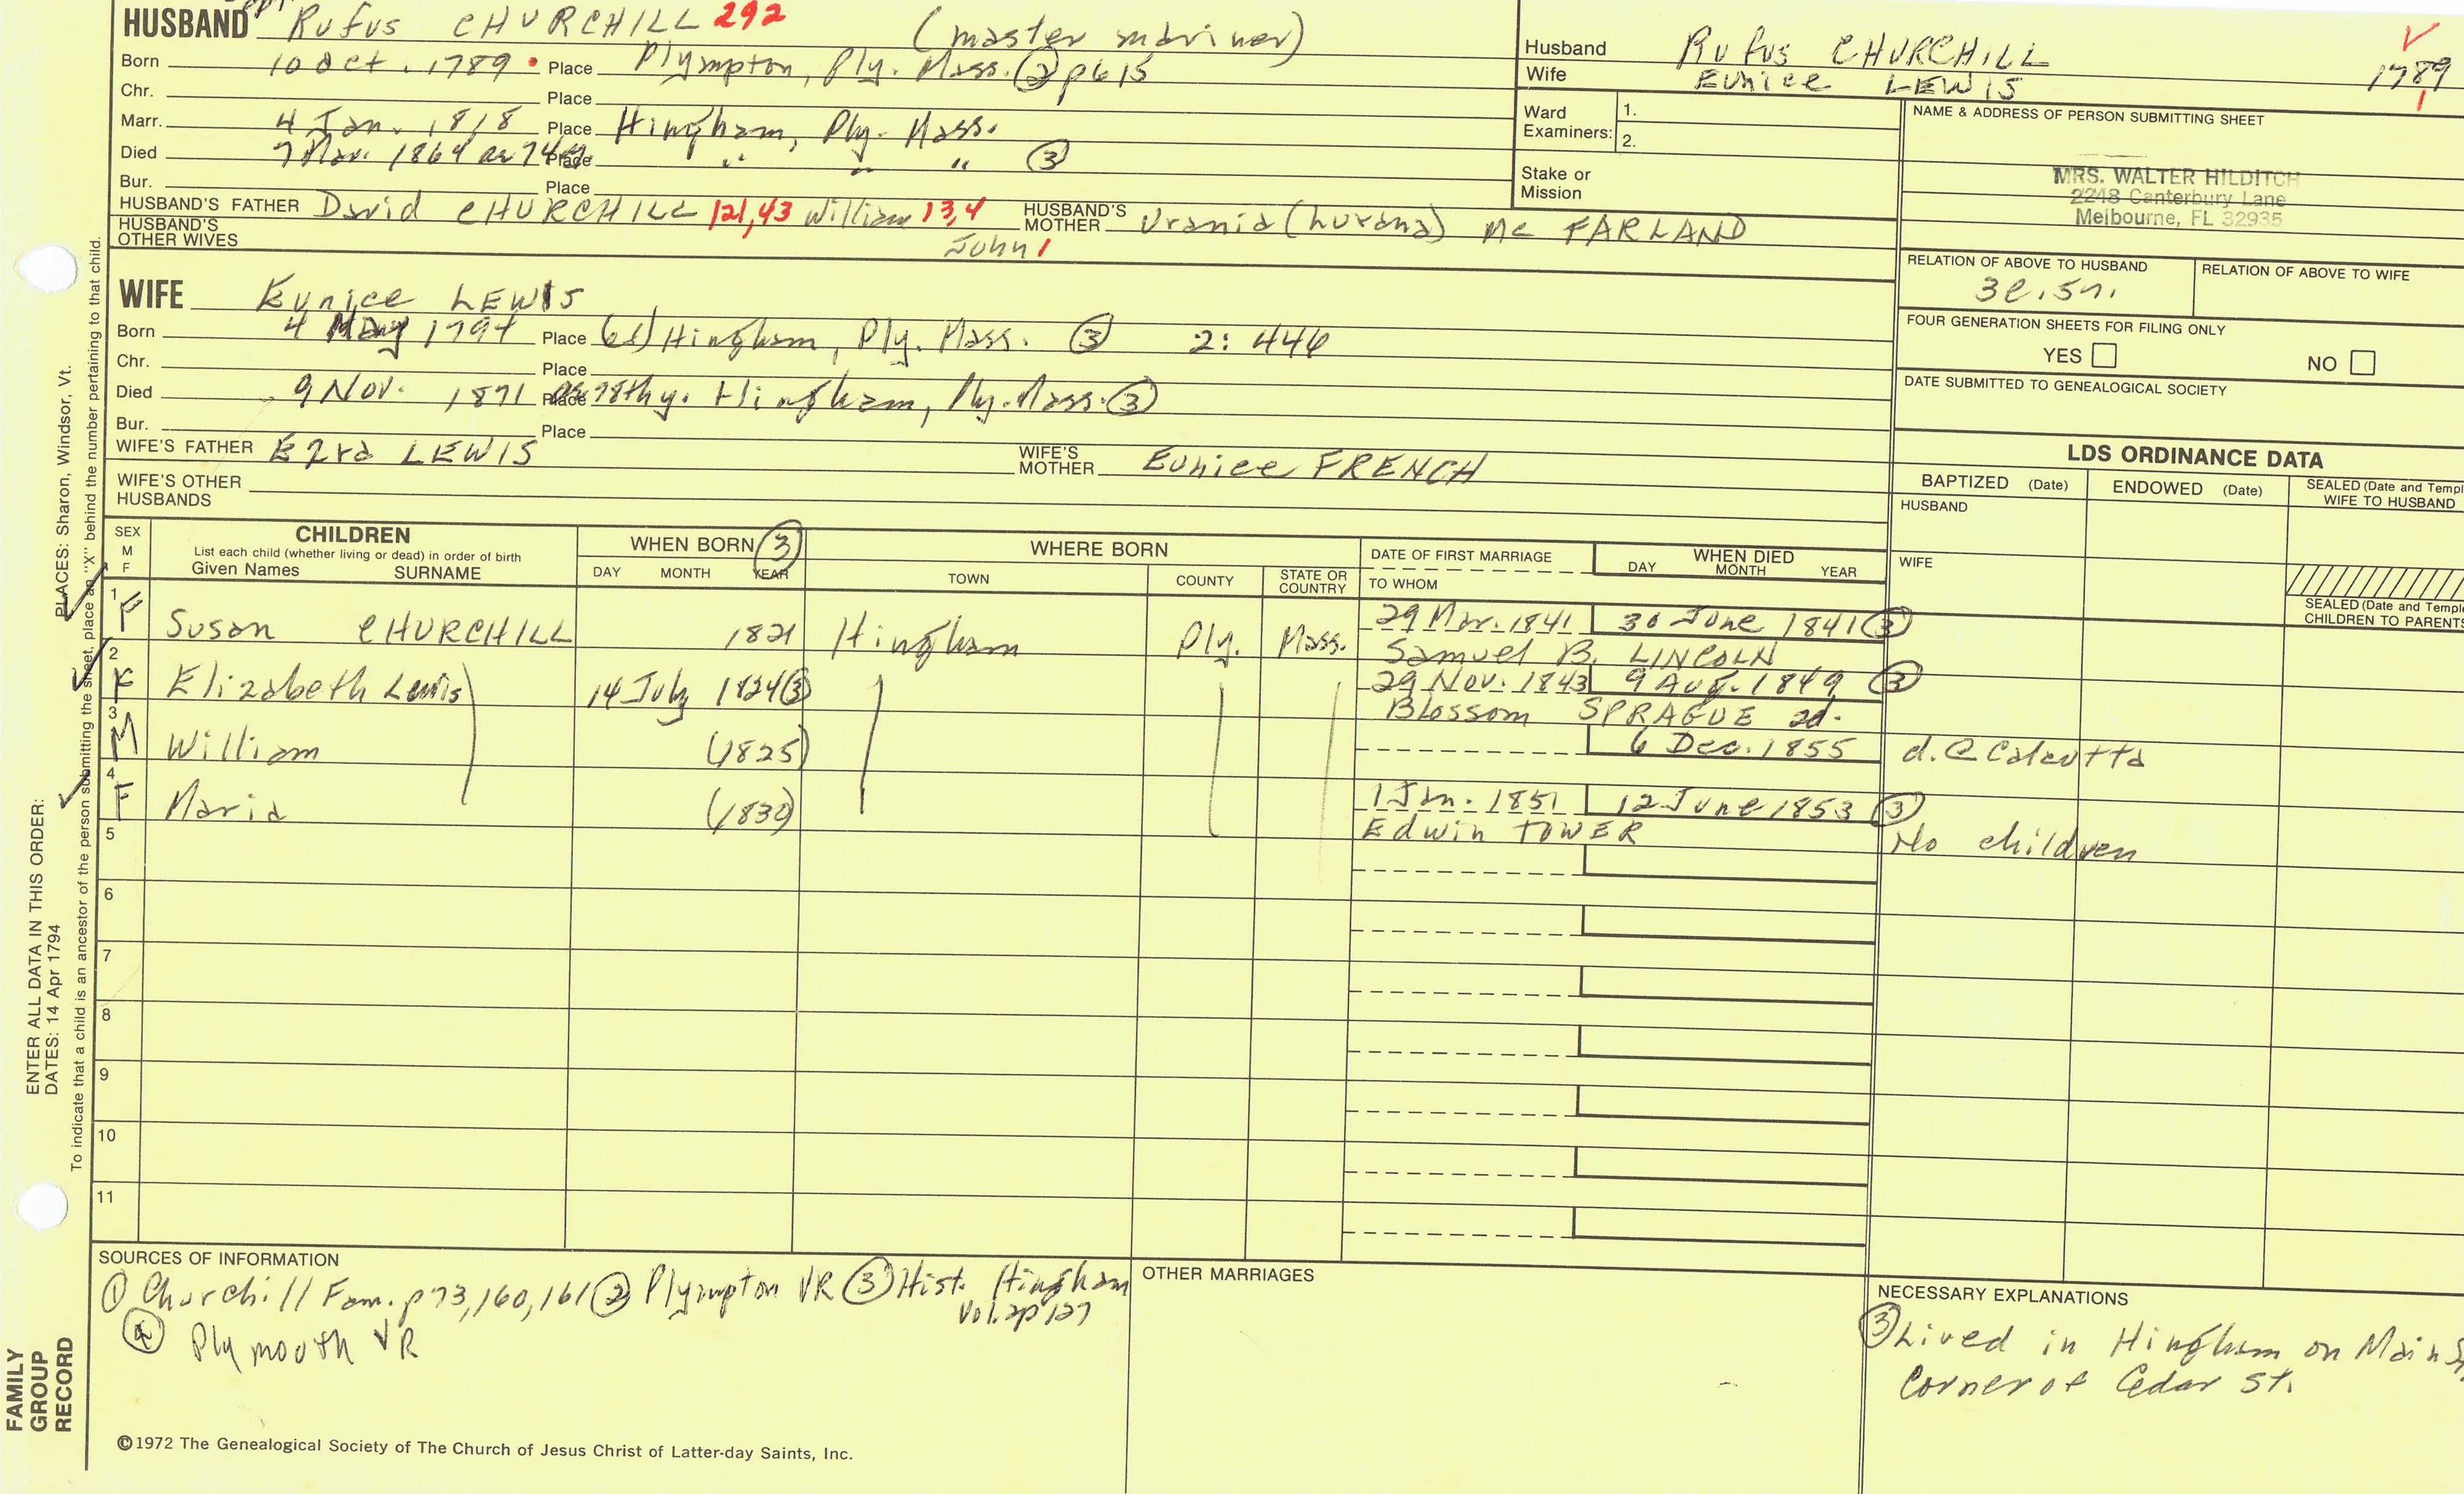 HUSBAND Rufus CHURCHILL 292 (master mariner)
Born 10 Oct. 1789 Place Plympton, Ply. Mass. ② p615
Chr. Place
Marr. 4 Jan. 1818 Place Hingham, Ply. Mass.
Died 7 Mar. 1864 ae 74y Place " " " ③
Bur. Place
HUSBAND'S FATHER David CHURCHILL 121,43 William 13,4 John 1 HUSBAND'S MOTHER Urania (Lurana) Mc FARLAND
HUSBAND'S OTHER WIVES
WIFE Eunice LEWIS
Born 4 May 1794 Place Hingham, Ply. Mass. ③ 2: 446
Chr. Place
Died 9 Nov. 1871 Place ae 78thy. Hingham, Ply. Mass. ③
Bur. Place
WIFE'S FATHER Ezra LEWIS WIFE'S MOTHER Eunice FRENCH
WIFE'S OTHER HUSBANDS
Husband Rufus CHURCHILL
Wife Eunice LEWIS
1789
1
Ward Examiners: 1.
2.
Stake or Mission
NAME & ADDRESS OF PERSON SUBMITTING SHEET
MRS. WALTER HILDITCH
2248 Canterbury Lane
Melbourne, FL 32935
RELATION OF ABOVE TO HUSBAND RELATION OF ABOVE TO WIFE
FOUR GENERATION SHEETS FOR FILING ONLY
YES NO
DATE SUBMITTED TO GENEALOGICAL SOCIETY
LDS ORDINANCE DATA
BAPTIZED (Date) ENDOWED (Date) SEALED (Date and Templ
WIFE TO HUSBAND
HUSBAND
WIFE
SEALED (Date and Temple
CHILDREN TO PARENTS
SEX M F CHILDREN WHEN BORN ③ WHERE BORN DATE OF FIRST MARRIAGE WHEN DIED
List each child (whether living or dead) in order of birth
Given Names SURNAME DAY MONTH YEAR TOWN COUNTY STATE OR COUNTRY TO WHOM DAY MONTH YEAR
1 F Susan CHURCHILL 1821 Hingham Ply. Mass. 29 Mar. 1841 30 June 1841 ③
Samuel B. LINCOLN
2 F Elizabeth Lewis 14 July 1824 ③ 29 Nov. 1843 9 Aug. 1849 ③
Blossom SPRAGUE 2d.
3 M William (1825) 6 Dec. 1855 d. @ Calcutta
4 F Maria (1830) 1 Jan. 1851 12 June 1853 ③
Edwin TOWER No children
5
6
7
8
9
10
11
SOURCES OF INFORMATION
① Churchill Fam. p73,160,161 ② Plympton VR ③ Hist. Hingham
Vol. 2p127
④ Plymouth VR
OTHER MARRIAGES
NECESSARY EXPLANATIONS
③ Lived in Hingham on Main St
Corner of Cedar St.
©1972 The Genealogical Society of The Church of Jesus Christ of Latter-day Saints, Inc.
FAMILY GROUP RECORD
ENTER ALL DATA IN THIS ORDER:
DATES: 14 Apr 1794 PLACES: Sharon, Windsor, Vt.
To indicate that a child is an ancestor of the person submitting the sheet, place an "X" behind the number pertaining to that child.